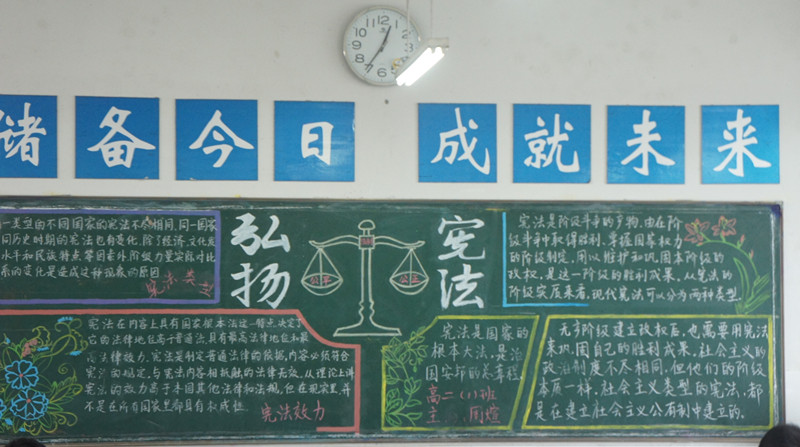 储备今日 成就未来
弘扬 宪法
一类型的不同国家的宪法不尽相同,同一国家
同历史时期的宪法也有变化,除了经济,文化发
水平和民族特点等因素外阶级力量实际对比
系的变化是造成这种现象的原因
宪法类型
公平 公正
宪法是阶级斗争的产物,由在阶
级斗争中取得胜利,掌握国家权力
的阶级制定,用以维护和巩固本阶级的
政权,是这一阶级的胜利成果。从宪法的
阶级实质来看,现代宪法可以分为两种类型。
宪法在内容上具有国家根本法这一特点,决定了
它的法律地位高于普通法,具有最高法律地位和最
高法律效力。宪法是制定普通法律的依据,内容必须符合
宪法的规定,与宪法内容相抵触的法律无效,从理论上讲
宪法的效力高于本国其他法律和法规,但在现实里,并
不是在所有国家里都具有权威性
宪法效力
宪法是国家的
根本大法,是治
国安邦的总章程。
高二(1)班
主
无产阶级建立政权后,也需要用宪法
来巩固自己的胜利成果。社会主义的
政治制度不尽相同,但他们的阶级
本质一样,社会主义类型的宪法,都
是在建立社会主义公有制中建立的。